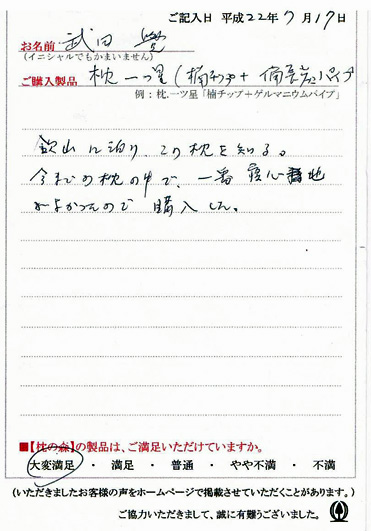 ご記入日 平成22年7月17日
お名前 武田 覺
(イニシャルでもかまいません)
ご購入製品 枕 一ツ星 (楠チップ + 備長炭パイプ
例：枕.一ツ星「楠チップ＋ゲルマニウムパイプ」
館山に泊り、この枕を知る。
今までの枕の中で、一番 寝心地
がよかったので 購入した。
■【枕の森】の製品は、ご満足いただけていますか。
大変満足 ・ 満足 ・ 普通 ・ やや不満 ・ 不満
(いただきましたお客様の声をホームページで掲載させていただくことがあります。)
ご協力いただきまして、誠に有難うございました。